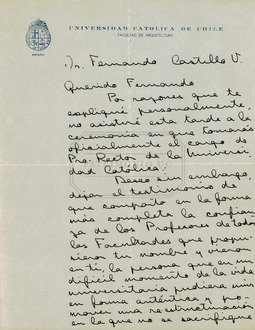 UNIVERSIDAD CATOLICA DE CHILE
FACULTAD DE ARQUITECTURA
Dn. Fernando Castillo V.
Querido Fernando
Por razones que te
expliqué personalmente,
no asistiré esta tarde a la
ceremonia en que tomarás
oficialmente el cargo de
Pro-Rector de la Universi
dad Católica.
Deseo sin embargo,
dejar el testimonio de
que comparto en la forma
más completa la confian
za de los Profesores de todas
las Facultades que propu
sieron tu nombre y vieron
en ti, la persona que en un
difícil momento de la vida
universitaria pudiera unir
en forma auténtica y pro
mover una reestructuración
en la que no se sacrifique